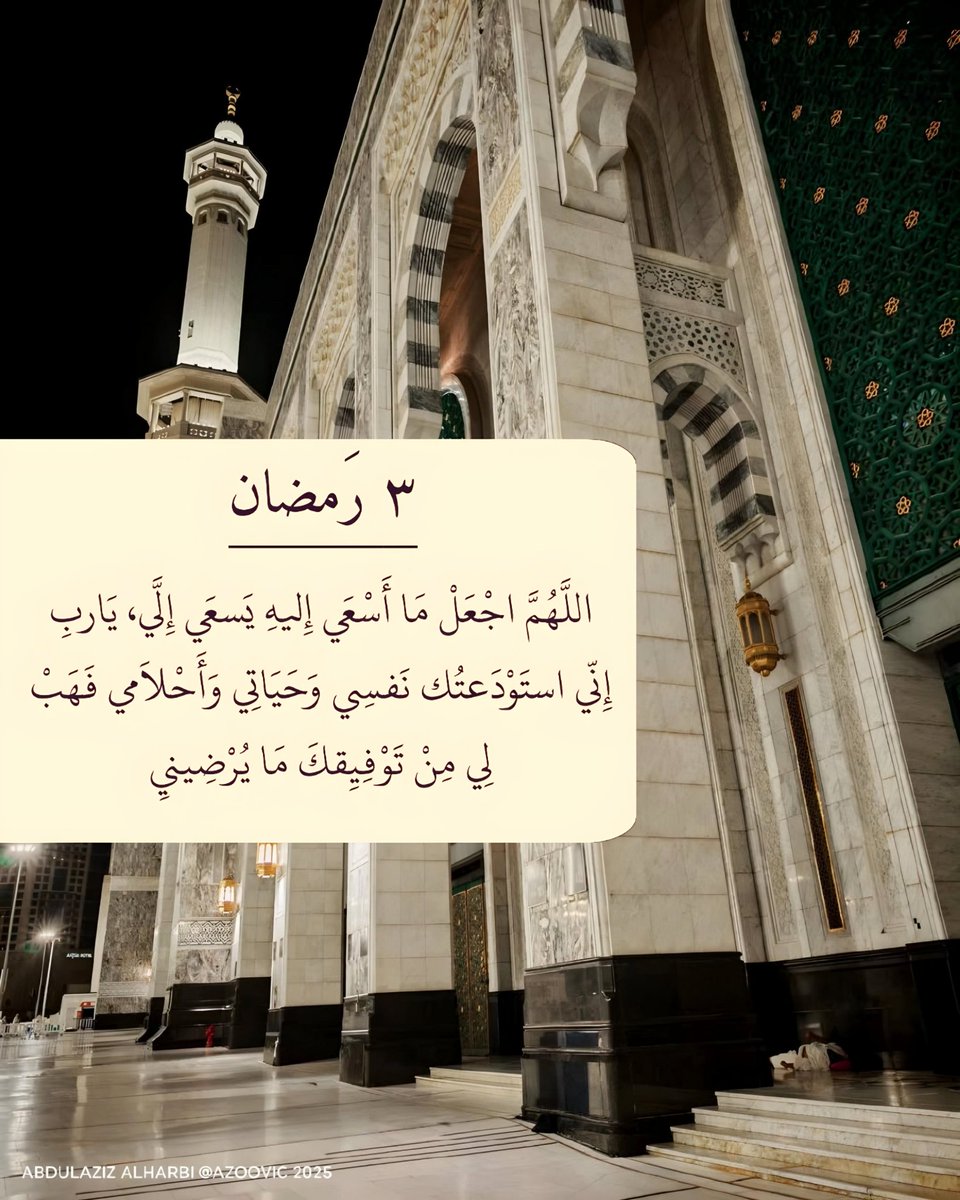 ٣ رَمضان
اللَّهُمَّ اجْعَلْ مَا أَسْعَي إِليهِ يَسعَي إِلَّي، يَاربِ
إِنّي استَوْدَعتُك نَفسِي وَحَيَاتِي وَأَحْلاَمي فَهَبْ
لِي مِنْ تَوْفِيِقكَ مَا يُرْضِينيِ
ABDULAZIZ ALHARBI @AZOOVIC 2025